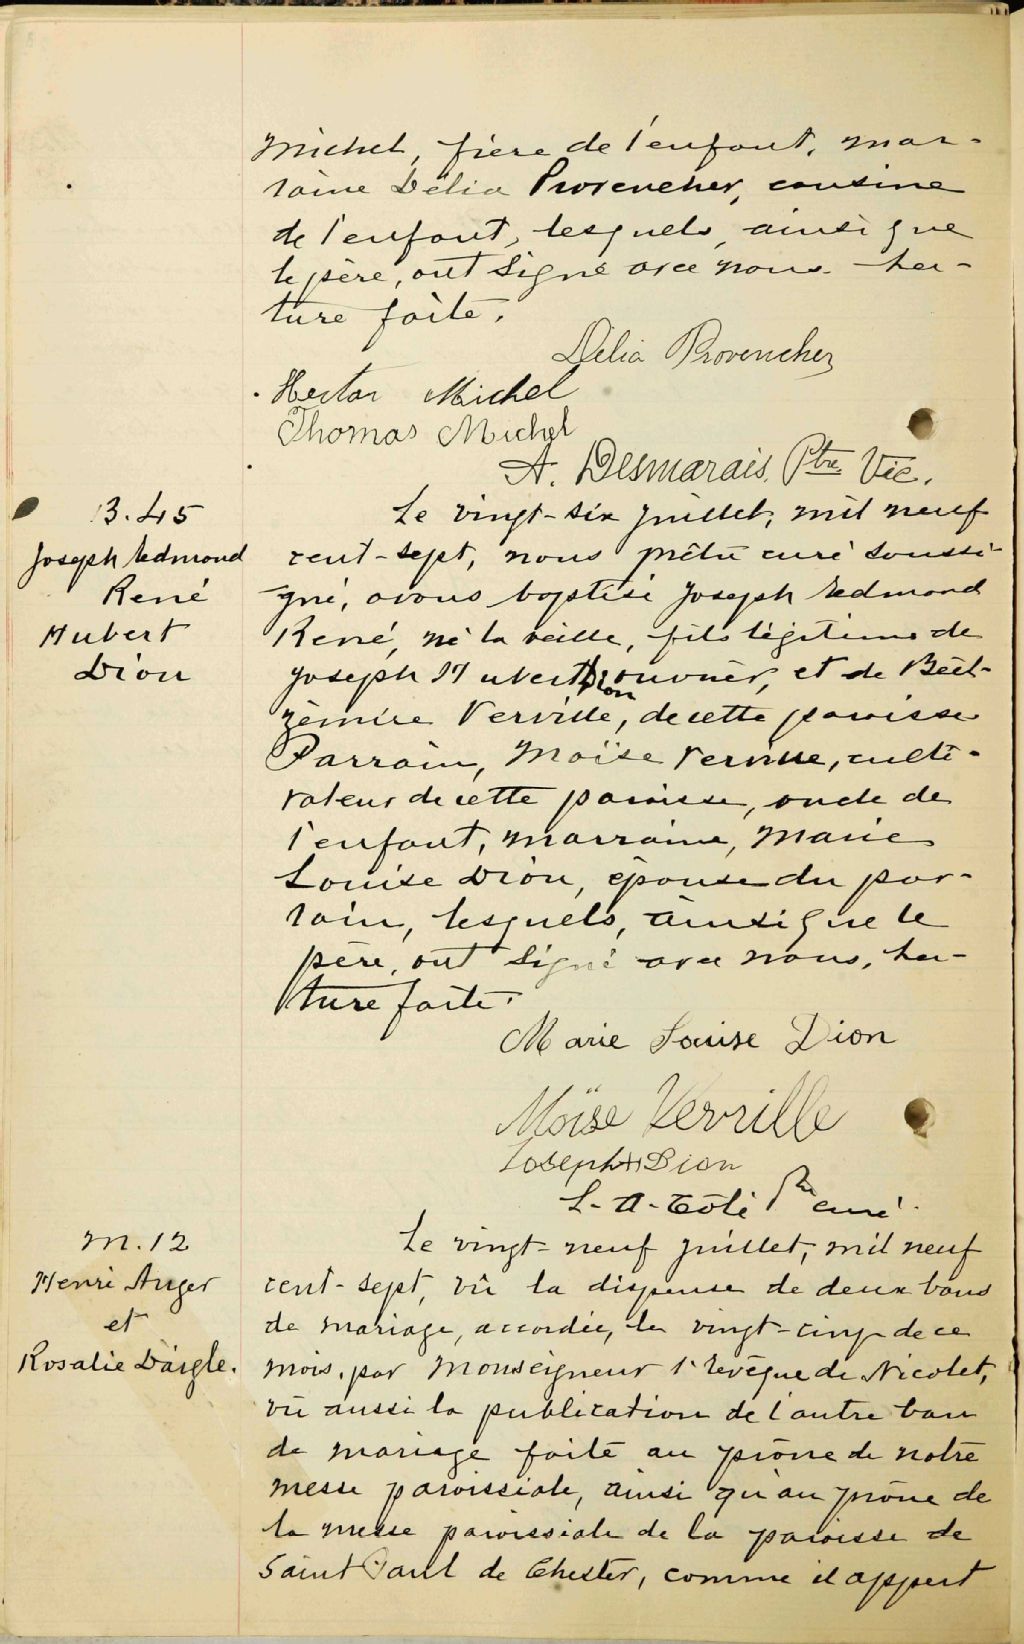 Michel, frère de l'enfant, mar-
raine Délia Provencher, cousine
de l'enfant, lesquels, ainsi que
le père, ont signé avec nous. Lec-
ture faite.
Délia Provencher
Hector Michel
Thomas Michel
A. Desmarais. Ptre Vic.
B. 45
Joseph Edmond
René
Hubert
Dion
Le vingt-six juillet, mil neuf
cent-sept, nous prêtre curé soussi-
gné, avons baptisé Joseph Edmond
René, né la veille, fils légitime de
Joseph Hubert Dion ouvrier, et de
zémire Verville, de cette paroisse
Parrain, Moïse Verville, culti-
vateur de cette paroisse, oncle de
l'enfant, marraine, Marie
Louise Dion, épouse du par-
rain, lesquels, ainsi que le
père, ont signé avec nous, Lec-
ture faite.
Marie Louise Dion
Moïse Verville
Joseph H Dion
L-A-Côté Ptre curé.
M. 12
Henri Auger
et
Rosalie Daigle.
Le vingt-neuf juillet, mil neuf
cent-sept, vu la dispense de deux bans
de mariage, accordée, le vingt-cinq de ce
mois, par Monseigneur l'Evêque de Nicolet,
vu aussi la publication de l'autre ban
de mariage faite au prône de notre
messe paroissiale, ainsi qu'au prône de
la messe paroissiale de la paroisse de
Saint Paul de Chester, comme il appert